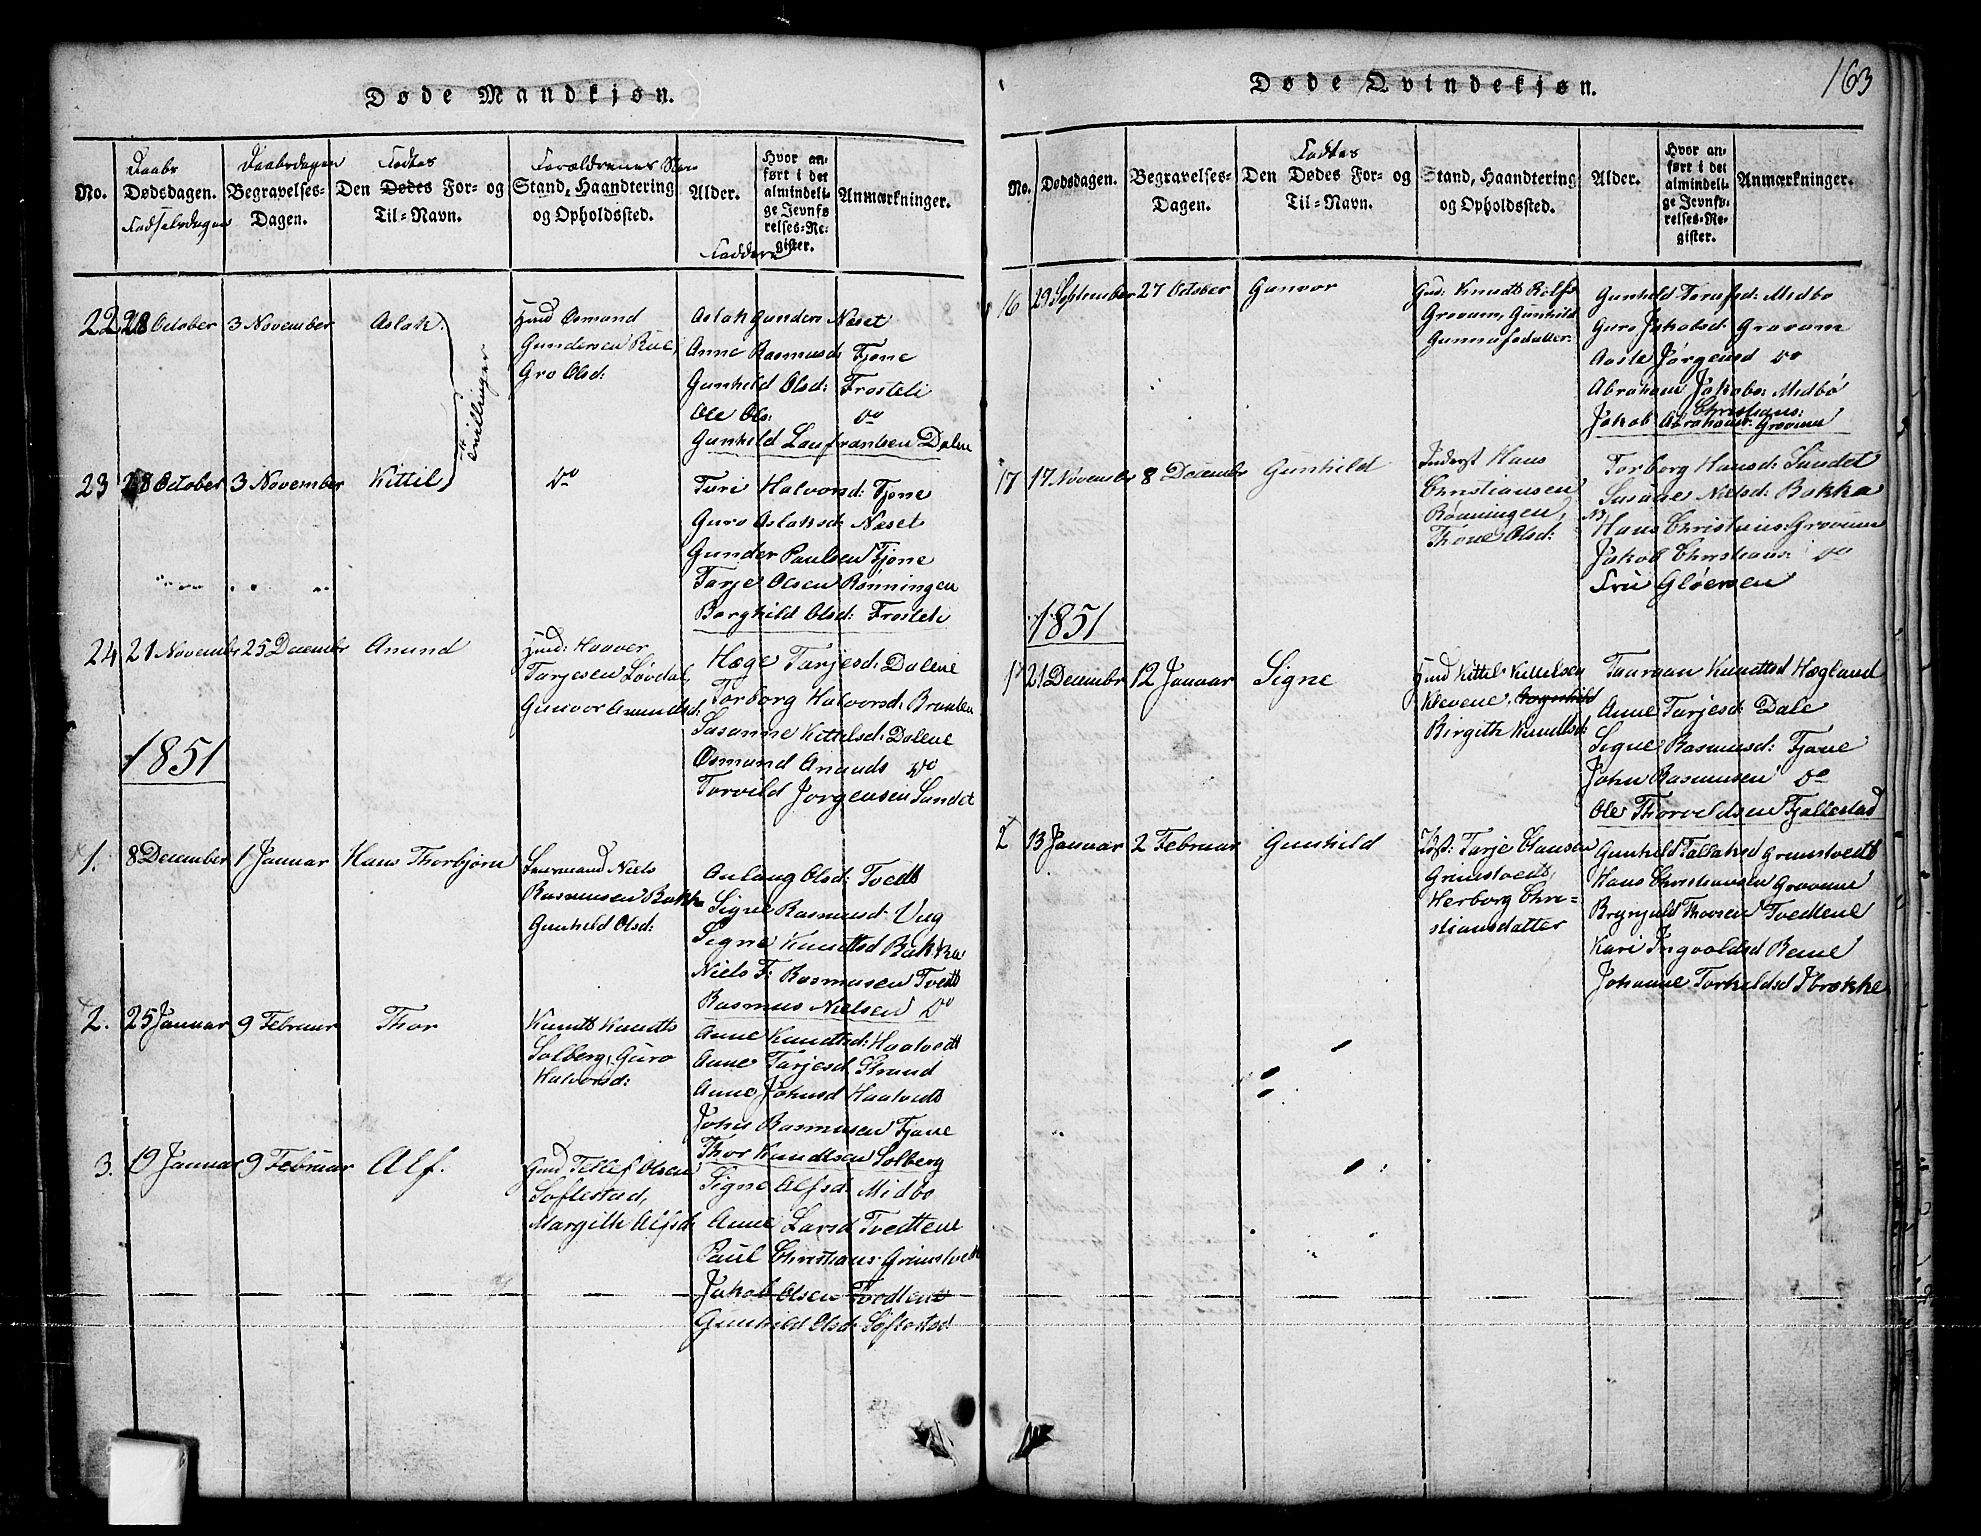 163
Døde Mandkjøn.
No.
Daabs
Dødsdagen.
Fødselsdagen
Daabsdagen
Begravelses-
Dagen.
Fødtes
Den Dødes For- og
Til-Navn.
Forældrenes
Stand, Haandtering
og Opholdssted.
Alder.
Faddere
Hvor an-
ført i det
almindeli-
ge Jevnfø-
relses-Re-
gister.
Anmærkninger.
22 28 October 3 November Aslak.
Tvillinger
Huusmd Osmund
Gundersen Rue,
Gro Olsd:
Aslak Gunders Naset
Anne Rasmusd: Fjone
Gunhild Olsd: Frosteli
Ole Ols: do
Gunhild Laufrantsen Dalene
23 28 October 3 November Kittil
do
Turi Halvorsd: Fjone
Guro Aslaksd: Naset
Gunder Paulsen Fjone
Tarje Olsen Rønningen
Borghild Olsd: Frosteli
24 21 November 25 Decembr Anund
Huusd: Haaver
Tarjesen Løvdal,
Gunvor Anundsd:
Hæge Tarjesd: Dalene
Torborg Halvorsd:
Susanne Kittelsd: Dalene
Osmund Anunds do
Torvild Jørgensen Sundet
1851
1. 8 December 1 Januar Hans Thorbjørn
Niels
Rasmussen Bakke
Gunhild Olsd:
Anlaug Olsd: Tvedt
Signe Rasmusd: Vug
Signe Knudtsd Bakka
Niels F: Rasmusen Tvedt
Rasmus Nielsen do
2. 25 Januar 9 Februar Thor
Knudt Knudts
Solberg, Guro
Halvorsd:
Anne Knudtsd: Haatvedt
Anne Tarjesd: Strand
Anne Johnsd Haatvedt
John Rasmusen Fjone
Thor Knudtsen Solberg
3. 19 Januar 9 Februar Alf.
Gmd Tellef Olsen
Søftestad,
Margith Alfsd:
Signe Alfsd: Midbø
Anne Larsd Tvedtene
Paul Christians: Grimstvedt
Jakob Olsen Tvedtene
Gunhild Olsd: Søftestad
Døde Qvindekjøn.
No.
Dødsdagen.
Begravelses-
Dagen.
Fødtes
Den Dødes For- og
Til-Navn.
Stand, Haandtering
og Opholdssted.
Alder.
Hvor an-
ført i det
almindeli-
ge Jevnfø-
relses-Re-
gister.
Anmærkninger.
16 29 September 27 October Gunvor
Gmd: Knudt Rolfs
Grovum, Gunhild
Gunnufsdatter.
Gunhild Torufsd: Midbø
Guro Jakobsd: Grovum
Aasle Jørgensd do
Abraham Jakobs: Midbø
Christians:
Jakob Abrahams: Grovum
17 17 November 8 Decembr Gunhild
Inderst Hans
Christiansen
Rønningen,
Thone Olsd:
Torborg Hansd: Sundet
Susane Nielsd: Bakka
Hans Christians: Grovum
Jakob Christians: do
Fru Gløersen
1851
1 21 Decembr 12 Januar Signe
Huusmd Kittel Kittelsen
Klevene, Aagnhild
Birgith Knudtsd:
Taaraan Knudtsd Hægland
Anne Tarjesd: Dale
Signe Rasmusd: Fjone
John Rasmusen do
Ole Thorvoldsen Fjallestad
2 13 Januar 2 Februar Gunhild
Inst: Tarje Olausen
Grimstvedt,
Herborg Chri-
stiansdatter
Gunhild Tallaksd Grimstvedt
Hans Christiansen Grovum
Brynjuld Thovsen Tvedtene
Kari Ingvoldsd Rene
Johanne Torkildsd Ibrøkke